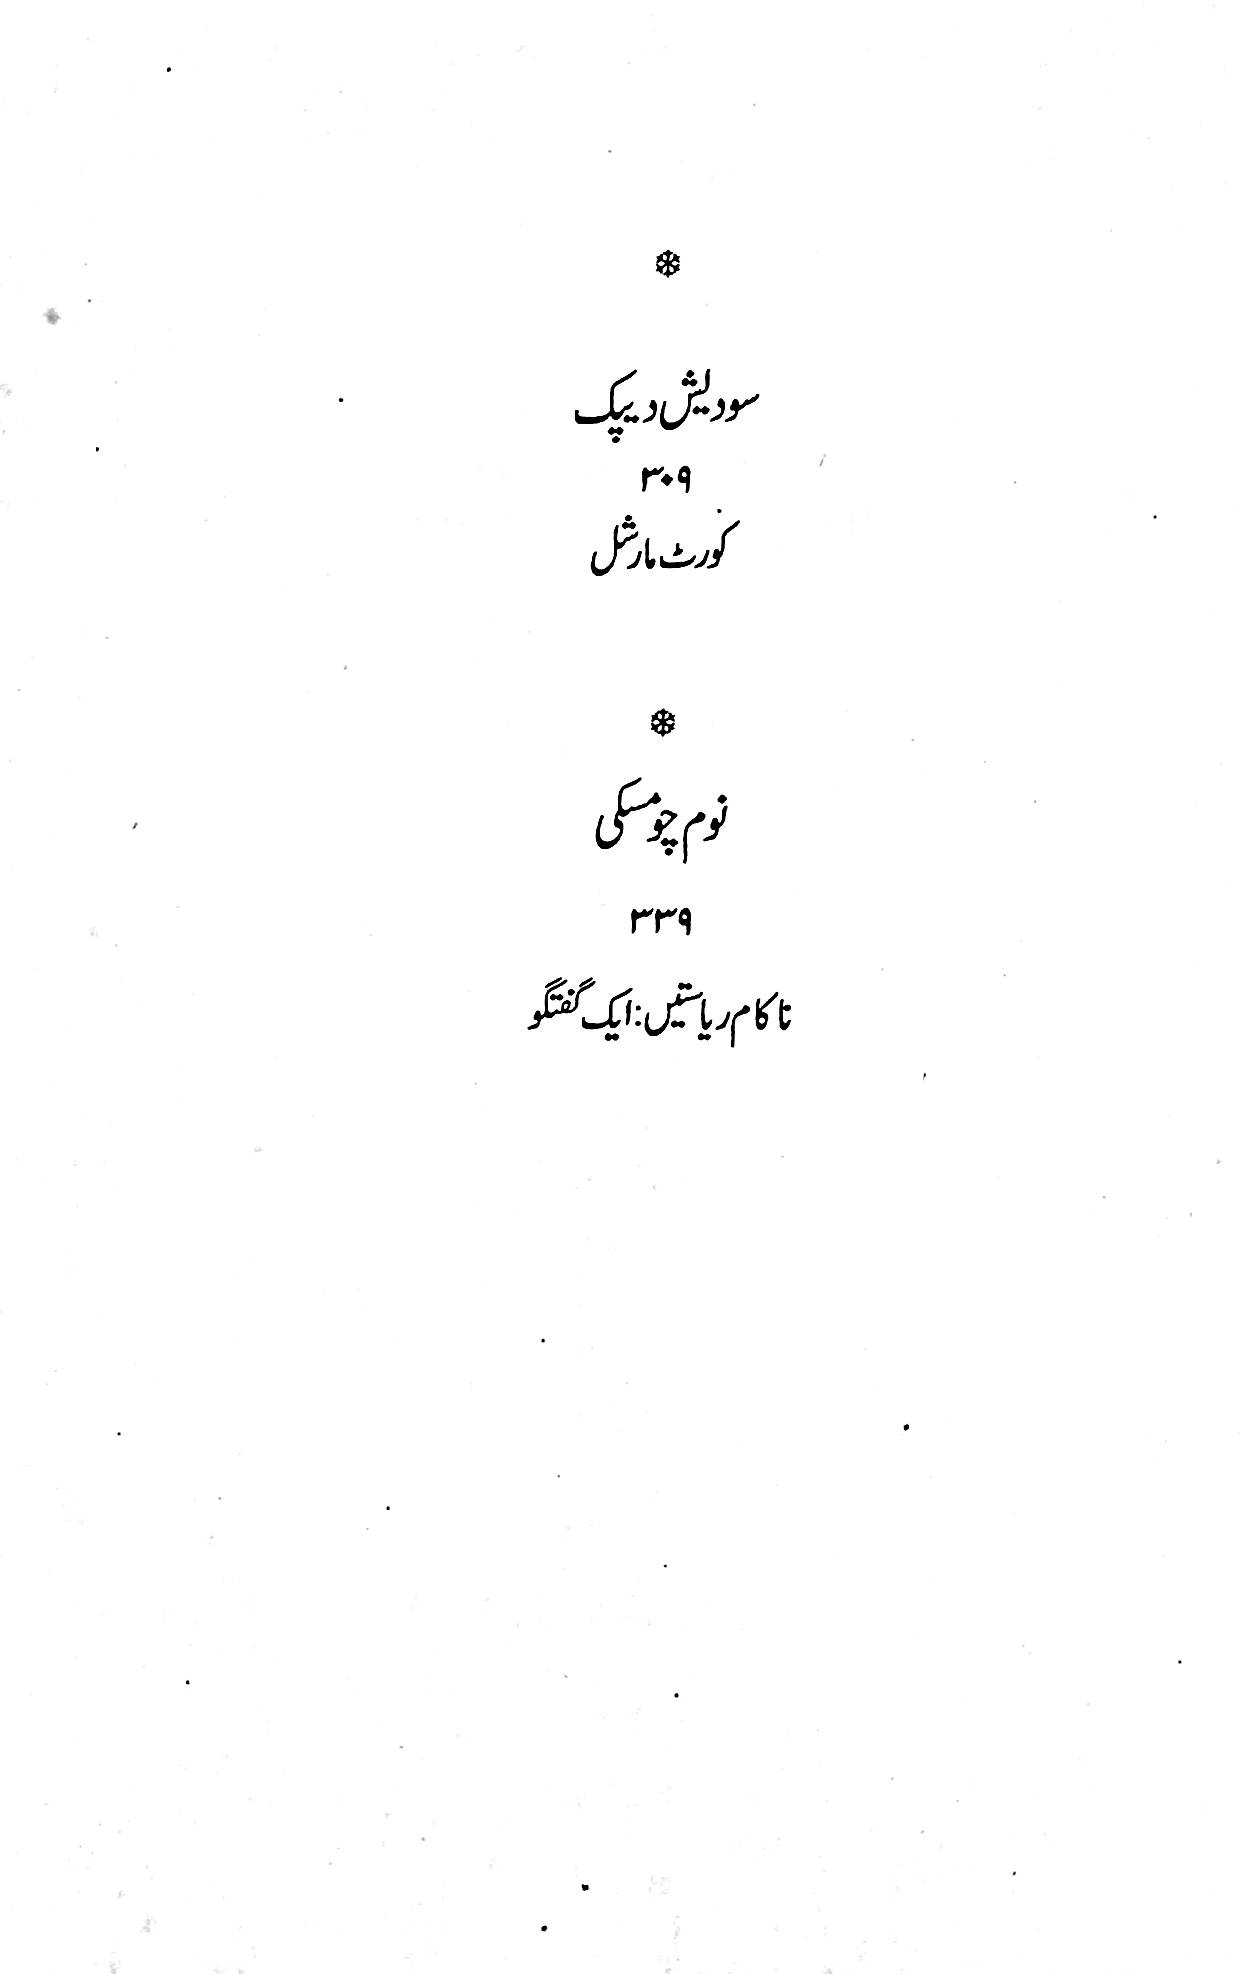 سودیش دیپک
۳۰۹
کورٹ مارشل
نوم چومسکی
۳۳۹
ناکام ریاستیں: ایک گفتگو